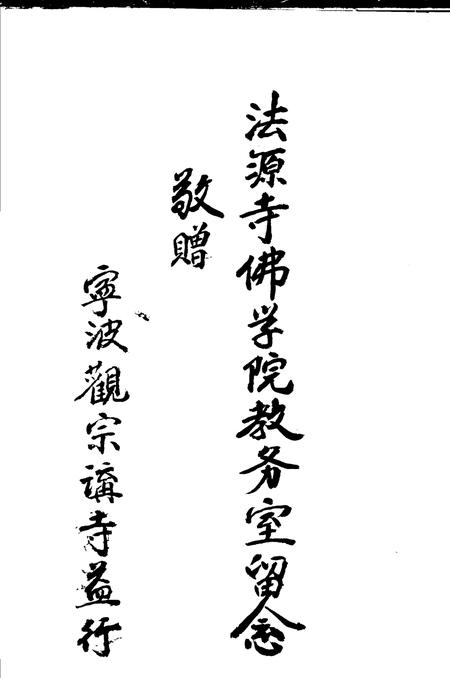 法源寺佛学院教务室留念
敬贈
寧波觀宗講寺益行